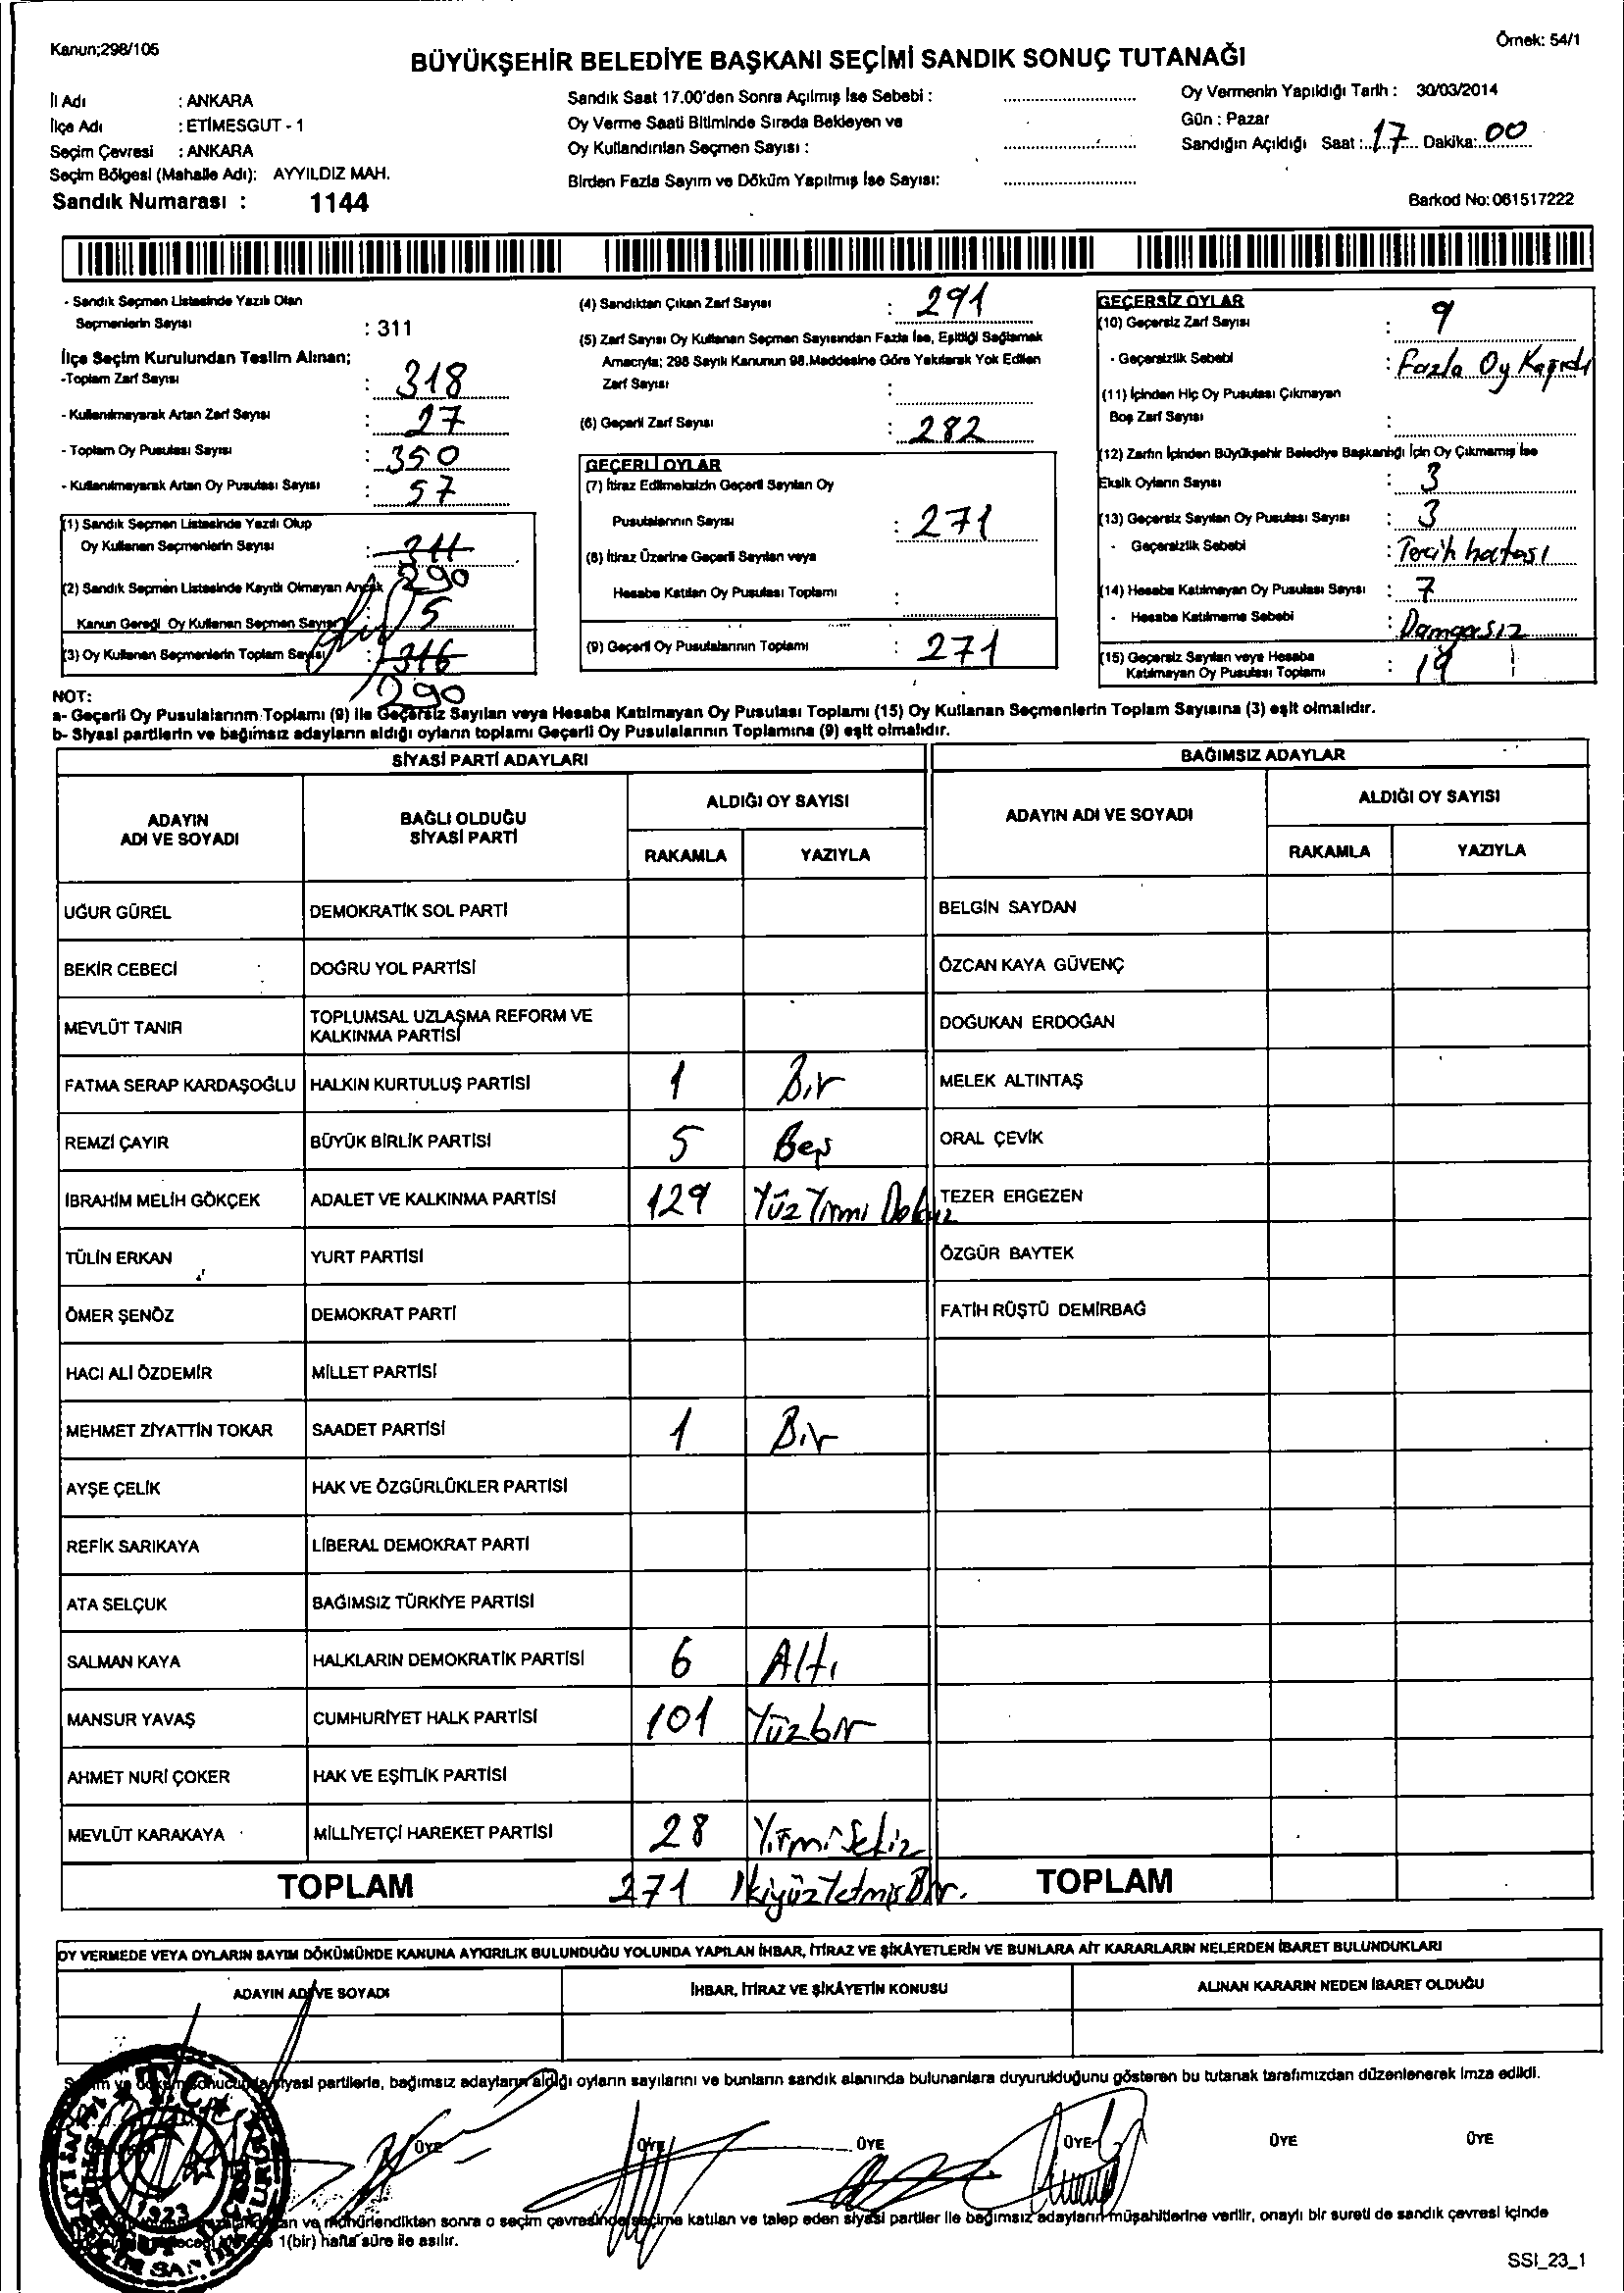 Kanun;298/105
Örnek: 54/1
BÜYÜKŞEHİR BELEDİYE BAŞKANI SEÇİMİ SANDIK SONUÇ TUTANAĞI
İl Adı : ANKARA
İlçe Adı : ETİMESGUT - 1
Seçim Çevresi : ANKARA
Seçim Bölgesi (Mahalle Adı): AYYILDIZ MAH.
Sandık Numarası : 1144
Sandık Saat 17.00'den Sonra Açılmış İse Sebebi :
Oy Verme Saati Bitiminde Sırada Bekleyen ve
Oy Kullandırılan Seçmen Sayısı :
Birden Fazla Sayım ve Döküm Yapılmış İse Sayısı:
Oy Vermenin Yapıldığı Tarih : 30/03/2014
Gün : Pazar
Sandığın Açıldığı Saat : 17 Dakika: 00
Barkod No: 061517222
- Sandık Seçmen Listesinde Yazılı Olan
Seçmenlerin Sayısı : 311
İlçe Seçim Kurulundan Teslim Alınan;
-Toplam Zarf Sayısı : 318
- Kullanılmayarak Artan Zarf Sayısı : 27
- Toplam Oy Pusulası Sayısı : 350
- Kullanılmayarak Artan Oy Pusulası Sayısı : 57
(1) Sandık Seçmen Listesinde Yazılı Olup
Oy Kullanan Seçmenlerin Sayısı : 311
290
(2) Sandık Seçmen Listesinde Kayıtlı Olmayan Ancak
Kanun Gereği Oy Kullanan Seçmen Sayısı 5
(3) Oy Kullanan Seçmenlerin Toplam Sayısı : 316
290
(4) Sandıktan Çıkan Zarf Sayısı : 291
(5) Zarf Sayısı Oy Kullanan Seçmen Sayısından Fazla İse, Eşitliği Sağlamak
Amacıyla; 298 Sayılı Kanunun 98.Maddesine Göre Yakılarak Yok Edilen
Zarf Sayısı :
(6) Geçerli Zarf Sayısı : 282
GEÇERLİ OYLAR
(7) İtiraz Edilmeksizin Geçerli Sayılan Oy
Pusulalarının Sayısı : 271
(8) İtiraz Üzerine Geçerli Sayılan veya
Hesaba Katılan Oy Pusulası Toplamı :
(9) Geçerli Oy Pusulalarının Toplamı : 271
GEÇERSİZ OYLAR
(10) Geçersiz Zarf Sayısı : 9
- Geçersizlik Sebebi : Fazla Oy Kağıdı
(11) İçinden Hiç Oy Pusulası Çıkmayan
Boş Zarf Sayısı :
(12) Zarfın İçinden Büyükşehir Belediye Başkanlığı İçin Oy Çıkmamış İse
Eksik Oyların Sayısı : 3
(13) Geçersiz Sayılan Oy Pusulası Sayısı : 3
- Geçersizlik Sebebi : Tercih hatası
(14) Hesaba Katılmayan Oy Pusulası Sayısı : 7
- Hesaba Katılmama Sebebi : Damgasız
(15) Geçersiz Sayılan veya Hesaba
Katılmayan Oy Pusulası Toplamı : 19
NOT:
a- Geçerli Oy Pusulalarının Toplamı (9) ile Geçersiz Sayılan veya Hesaba Katılmayan Oy Pusulası Toplamı (15) Oy Kullanan Seçmenlerin Toplam Sayısına (3) eşit olmalıdır.
b- Siyasi partilerin ve bağımsız adayların aldığı oyların toplamı Geçerli Oy Pusulalarının Toplamına (9) eşit olmalıdır.
SİYASİ PARTİ ADAYLARI
BAĞIMSIZ ADAYLAR
ADAYIN ADI VE SOYADI
BAĞLI OLDUĞU SİYASİ PARTİ
ALDIĞI OY SAYISI
RAKAMLA YAZIYLA
ADAYIN ADI VE SOYADI
ALDIĞI OY SAYISI
RAKAMLA YAZIYLA
UĞUR GÜREL DEMOKRATİK SOL PARTİ BELGİN SAYDAN
BEKİR CEBECİ DOĞRU YOL PARTİSİ ÖZCAN KAYA GÜVENÇ
MEVLÜT TANIR TOPLUMSAL UZLAŞMA REFORM VE KALKINMA PARTİSİ DOĞUKAN ERDOĞAN
FATMA SERAP KARDAŞOĞLU HALKIN KURTULUŞ PARTİSİ 1 Bir MELEK ALTINTAŞ
REMZİ ÇAYIR BÜYÜK BİRLİK PARTİSİ 5 Beş ORAL ÇEVİK
İBRAHİM MELİH GÖKÇEK ADALET VE KALKINMA PARTİSİ 129 Yüz Yirmi Dokuz TEZER ERGEZEN
TÜLİN ERKAN YURT PARTİSİ ÖZGÜR BAYTEK
ÖMER ŞENÖZ DEMOKRAT PARTİ FATİH RÜŞTÜ DEMİRBAĞ
HACI ALİ ÖZDEMİR MİLLET PARTİSİ
MEHMET ZİYATTİN TOKAR SAADET PARTİSİ 1 Bir
AYŞE ÇELİK HAK VE ÖZGÜRLÜKLER PARTİSİ
REFİK SARIKAYA LİBERAL DEMOKRAT PARTİ
ATA SELÇUK BAĞIMSIZ TÜRKİYE PARTİSİ
SALMAN KAYA HALKLARIN DEMOKRATİK PARTİSİ 6 Altı
MANSUR YAVAŞ CUMHURİYET HALK PARTİSİ 101 Yüzbir
AHMET NURİ ÇOKER HAK VE EŞİTLİK PARTİSİ
MEVLÜT KARAKAYA MİLLİYETÇİ HAREKET PARTİSİ 28 Yirmi Sekiz
TOPLAM 271 İkiyüz Yetmiş Bir. TOPLAM
OY VERMEDE VEYA OYLARIN SAYIM DÖKÜMÜNDE KANUNA AYKIRILIK BULUNDUĞU YOLUNDA YAPILAN İHBAR, İTİRAZ VE ŞİKÂYETLERİN VE BUNLARA AİT KARARLARIN NELERDEN İBARET BULUNDUKLARI
ADAYIN ADI VE SOYADI İHBAR, İTİRAZ VE ŞİKÂYETİN KONUSU ALINAN KARARIN NEDEN İBARET OLDUĞU
siyasi partilerle, bağımsız adayların aldığı oyların sayılarını ve bunların sandık alanında bulunanlara duyurulduğunu gösteren bu tutanak tarafımızdan düzenlenerek imza edildi.
T.C.
1923
ÜYE ÜYE ÜYE ÜYE ÜYE ÜYE
ve mühürlendikten sonra o seçim çevresinde seçime katılan ve talep eden siyasi partiler ile bağımsız adayların müşahitlerine verilir, onaylı bir sureti de sandık çevresi içinde
1(bir) hafta süre ile asılır.
SSI_23_1